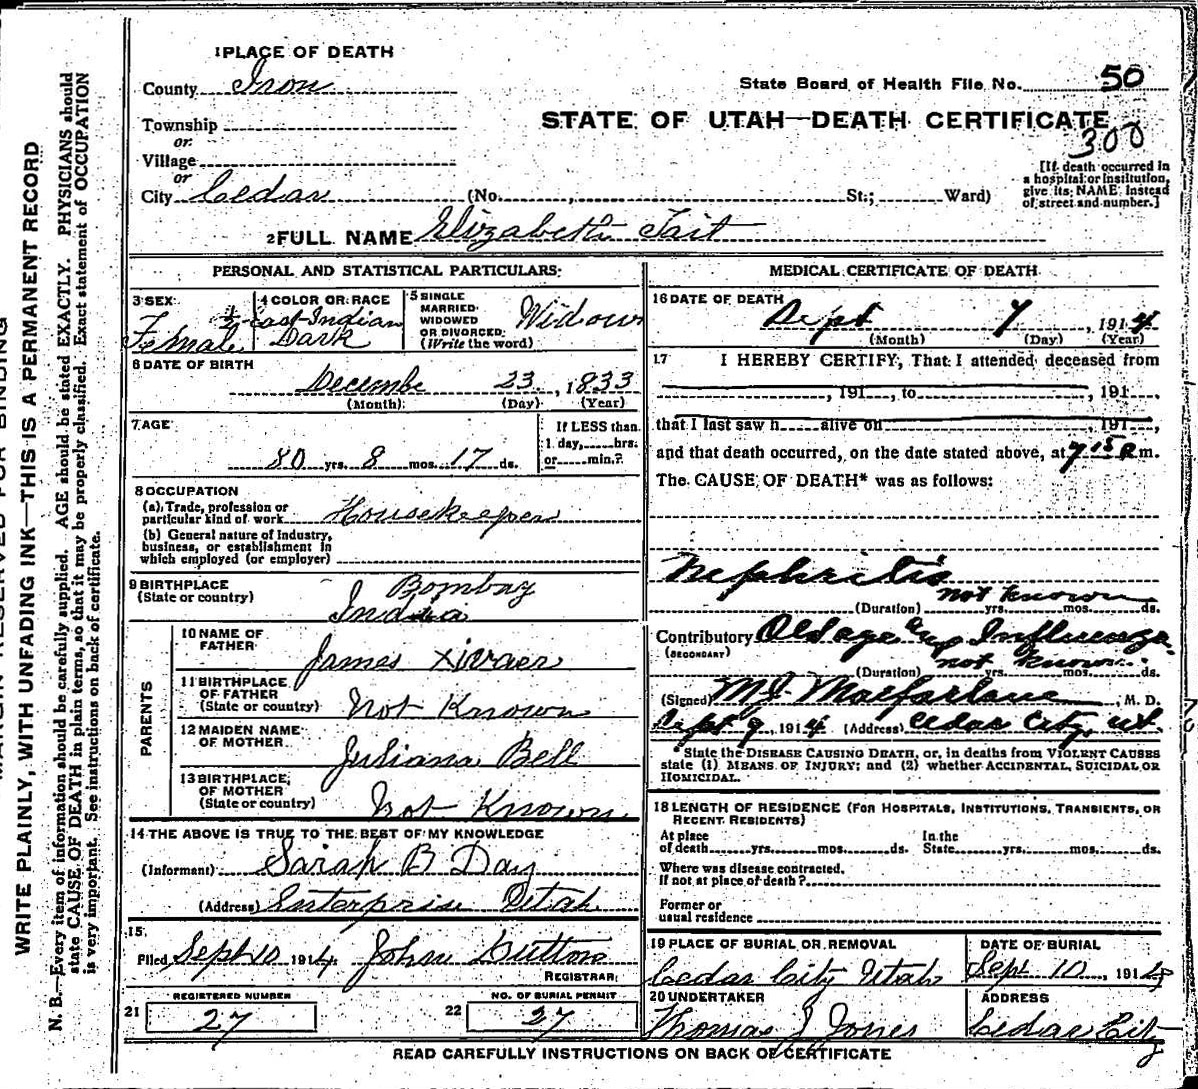 1 PLACE OF DEATH
County Iron
Township
or
Village
or
City Cedar (No. , St; Ward)
State Board of Health File No. 50
STATE OF UTAH—DEATH CERTIFICATE
300
[If death occurred in
a hospital or institution,
give its NAME instead
of street and number.]
2 FULL NAME Elizabeth Tait
PERSONAL AND STATISTICAL PARTICULARS:
3 SEX
Female
4 COLOR OR RACE
½ East Indian
Dark
5 SINGLE
MARRIED
WIDOWED
OR DIVORCED
(Write the word)
Widow
6 DATE OF BIRTH
December 23, 1833
(Month) (Day) (Year)
7 AGE
80 yrs. 8 mos. 17 ds.
If LESS than
1 day, hrs.
or min.?
8 OCCUPATION
(a) Trade, profession or
particular kind of work Housekeeper
(b) General nature of industry,
business, or establishment in
which employed (or employer)
9 BIRTHPLACE
(State or country)
Bombay
India
PARENTS
10 NAME OF
FATHER
James Xivaer
11 BIRTHPLACE
OF FATHER
(State or country)
Not Known
12 MAIDEN NAME
OF MOTHER
Juliana Bell
13 BIRTHPLACE
OF MOTHER
(State or country)
Not Known
14 THE ABOVE IS TRUE TO THE BEST OF MY KNOWLEDGE
(Informant) Sarah B Day
(Address) Enterprise Utah
15
Filed Sept 10 1914. John
REGISTRAR
REGISTERED NUMBER
21 27
NO. OF BURIAL PERMIT
22 27
MEDICAL CERTIFICATE OF DEATH
16 DATE OF DEATH
Sept 7, 1914
(Month) (Day) (Year)
17 I HEREBY CERTIFY, That I attended deceased from
, 191 , to , 191 ,
that I last saw h alive on , 191 ,
and that death occurred, on the date stated above, at 7 15 P m.
The CAUSE OF DEATH* was as follows:
Nephritis
not known
(Duration) yrs. mos. ds.
Contributory Old age and Influenza
(SECONDARY)
not known
(Duration) yrs. mos. ds.
(Signed) M J Macfarlane, M. D.
Sept 9, 1914 (Address) Cedar City, Ut.
*State the DISEASE CAUSING DEATH, or, in deaths from VIOLENT CAUSES
state (1) MEANS OF INJURY; and (2) whether ACCIDENTAL, SUICIDAL OR
HOMICIDAL.
18 LENGTH OF RESIDENCE (FOR HOSPITALS, INSTITUTIONS, TRANSIENTS, OR
RECENT RESIDENTS)
At place
of death yrs. mos. ds.
In the
State yrs. mos. ds.
Where was disease contracted,
If not at place of death?
Former or
usual residence
19 PLACE OF BURIAL OR REMOVAL
Cedar City Utah
DATE OF BURIAL
Sept 10, 1914
20 UNDERTAKER
Thomas J Jones
ADDRESS
Cedar City
READ CAREFULLY INSTRUCTIONS ON BACK OF CERTIFICATE
MARGIN RESERVED FOR BINDING
WRITE PLAINLY, WITH UNFADING INK—THIS IS A PERMANENT RECORD
N. B.—Every item of information should be carefully supplied. AGE should be stated EXACTLY. PHYSICIANS should
state CAUSE OF DEATH in plain terms, so that it may be properly classified. Exact statement of OCCUPATION
is very important. See instructions on back of certificate.